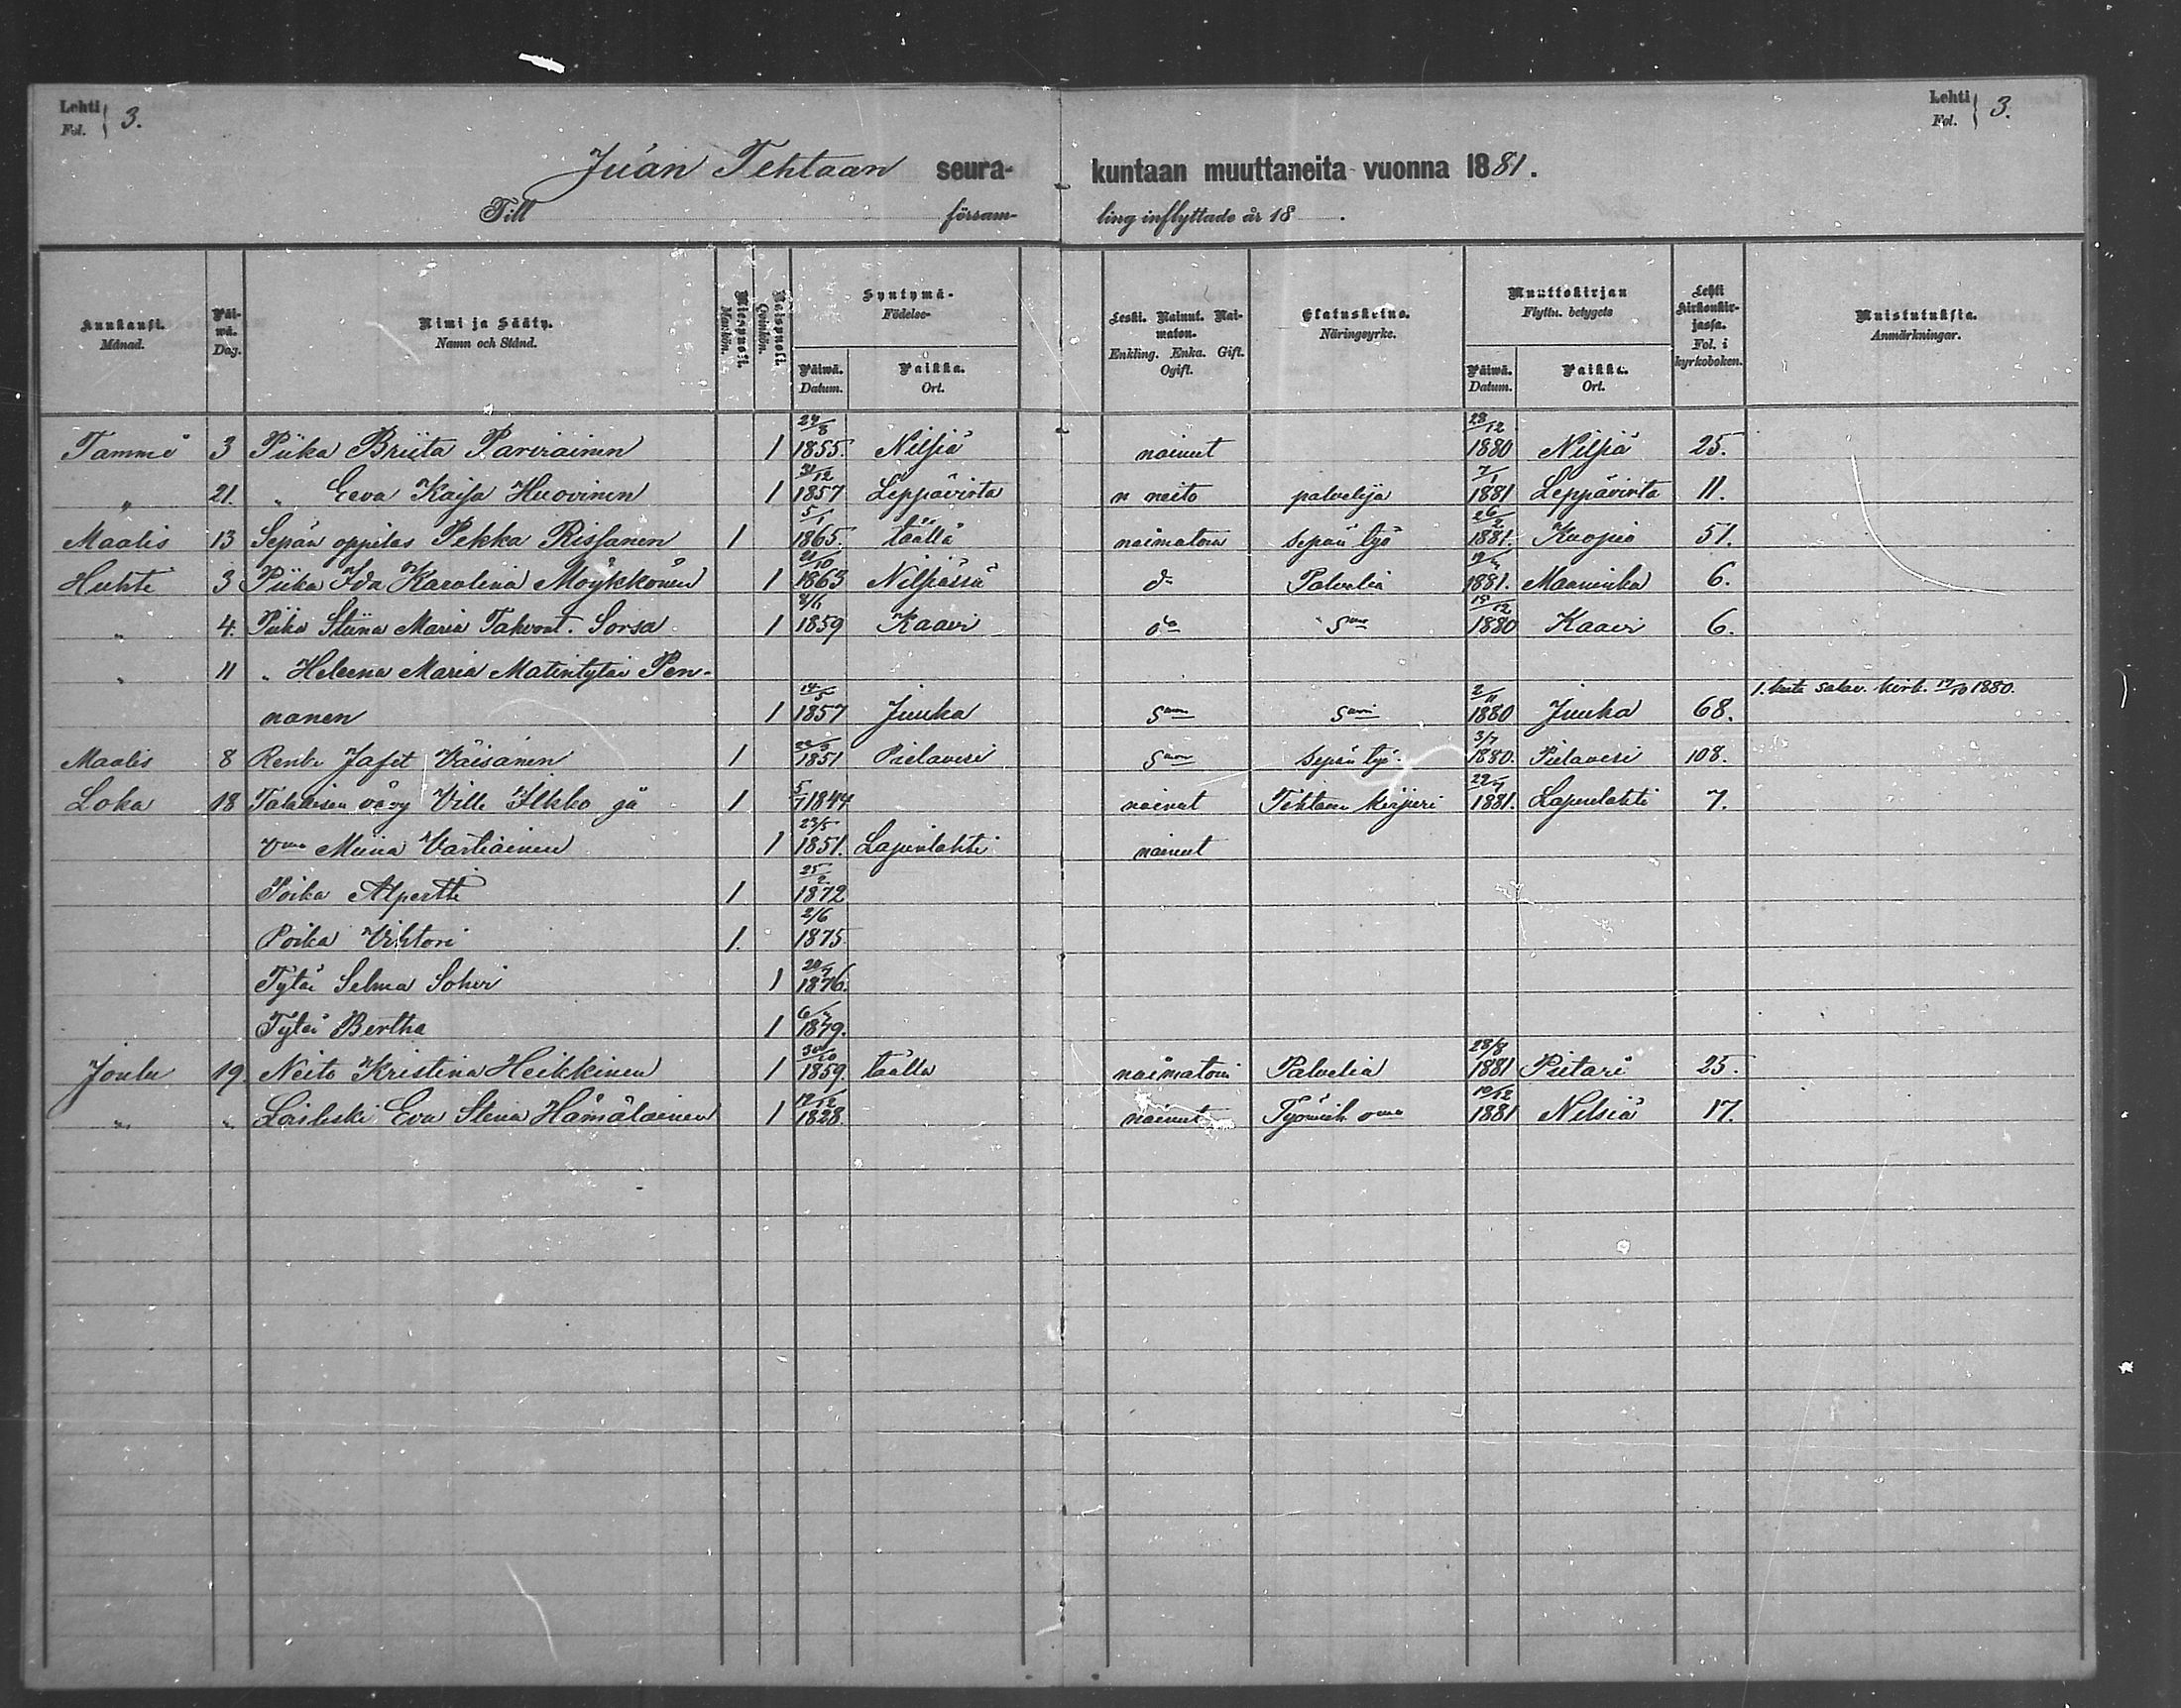 Lehti Fol. } 3.
Lehti Fol. } 3.
Juan Tehtaan seura- kuntaan muuttaneita vuonna 1881.
Till försam- ling inflyttade år 18 .
Kuukausi. Månad.
Päi-wä. Dag.
Nimi ja Sääty. Namn och Stånd.
Miespuoli. Mankön.
Naispuoli. Qvinkön.
Syntymä- Födelse-
Päiwä. Datum.
Paikka. Ort.
Leski. Nainut. Naimaton. Enkling. Enka. Gift. Ogift.
Elatuskeino. Näringsyrke.
Muuttokirjan Flyttn. betygets
Päiwä. Datum.
Paikka. Ort.
Lehti kirkonkirjassa. Fol. i kyrkoboken.
Muistutuksia. Anmärkningar.
Tammi 3 Piika Briita Parviainen 1 24/8 1855. Nilsiä nainut 28/12 1880 Nilsiä 25.
" 21. " Eeva Kaisa Huovinen 1 31/12 1857 Leppävirta n neito palvelija 7/1 1881 Leppävirta 11.
Maalis 13 Sepän oppilas Pekka Rissanen 1 5/1 1865. täällä naimaton sepän työ 26/2 1881. Kuopio 51.
Huhti 3 Piika Ida Karolina Möykkönen 1 21/10 1863 Nilsiässä do Palvelia 1881. Maaninka 6.
" 4. Piika Stiina Maria Tahvont. Sorsa 1 1859 Kaavi do Sama 15/12 1880 Kaavi 6.
" 11 " Heleena Maria Matintytär Pen-
nanen 1 14/5 1857 Juuka Sama Sama 2/11 1880 Juuka 68. 1. kert. salav. kirk. 1880.
Maalis 8 Renki Jafet Väisänen 1 1851 Pielavesi Sama sepän työ. 3/7 1880. Pielavesi 108.
Loka 18 Talollisen vävy Ville Ilkko ja 1 5/7 1844 nainut Tehtaan kirjuri 1881. Lapinlahti 7.
Vmo Miina Vartiainen 1 23/5 1851. Lapinlahti nainut
Poika Alpertti 1 25/2 1872
Poika Vihtori 1. 2/6 1875
Tytär Selma Sohvi 1 1876.
Tytär Bertha 1 1879.
Joulu 19. Neito Kristina Heikkinen 1 30/10 1859. täällä naimaton Palvelia 28/8 1881 Pietari 25.
" " Loisleski Eva Stina Hämäläinen 1 12/12 1828. nainut 10/12 1881 Nilsiä 17.